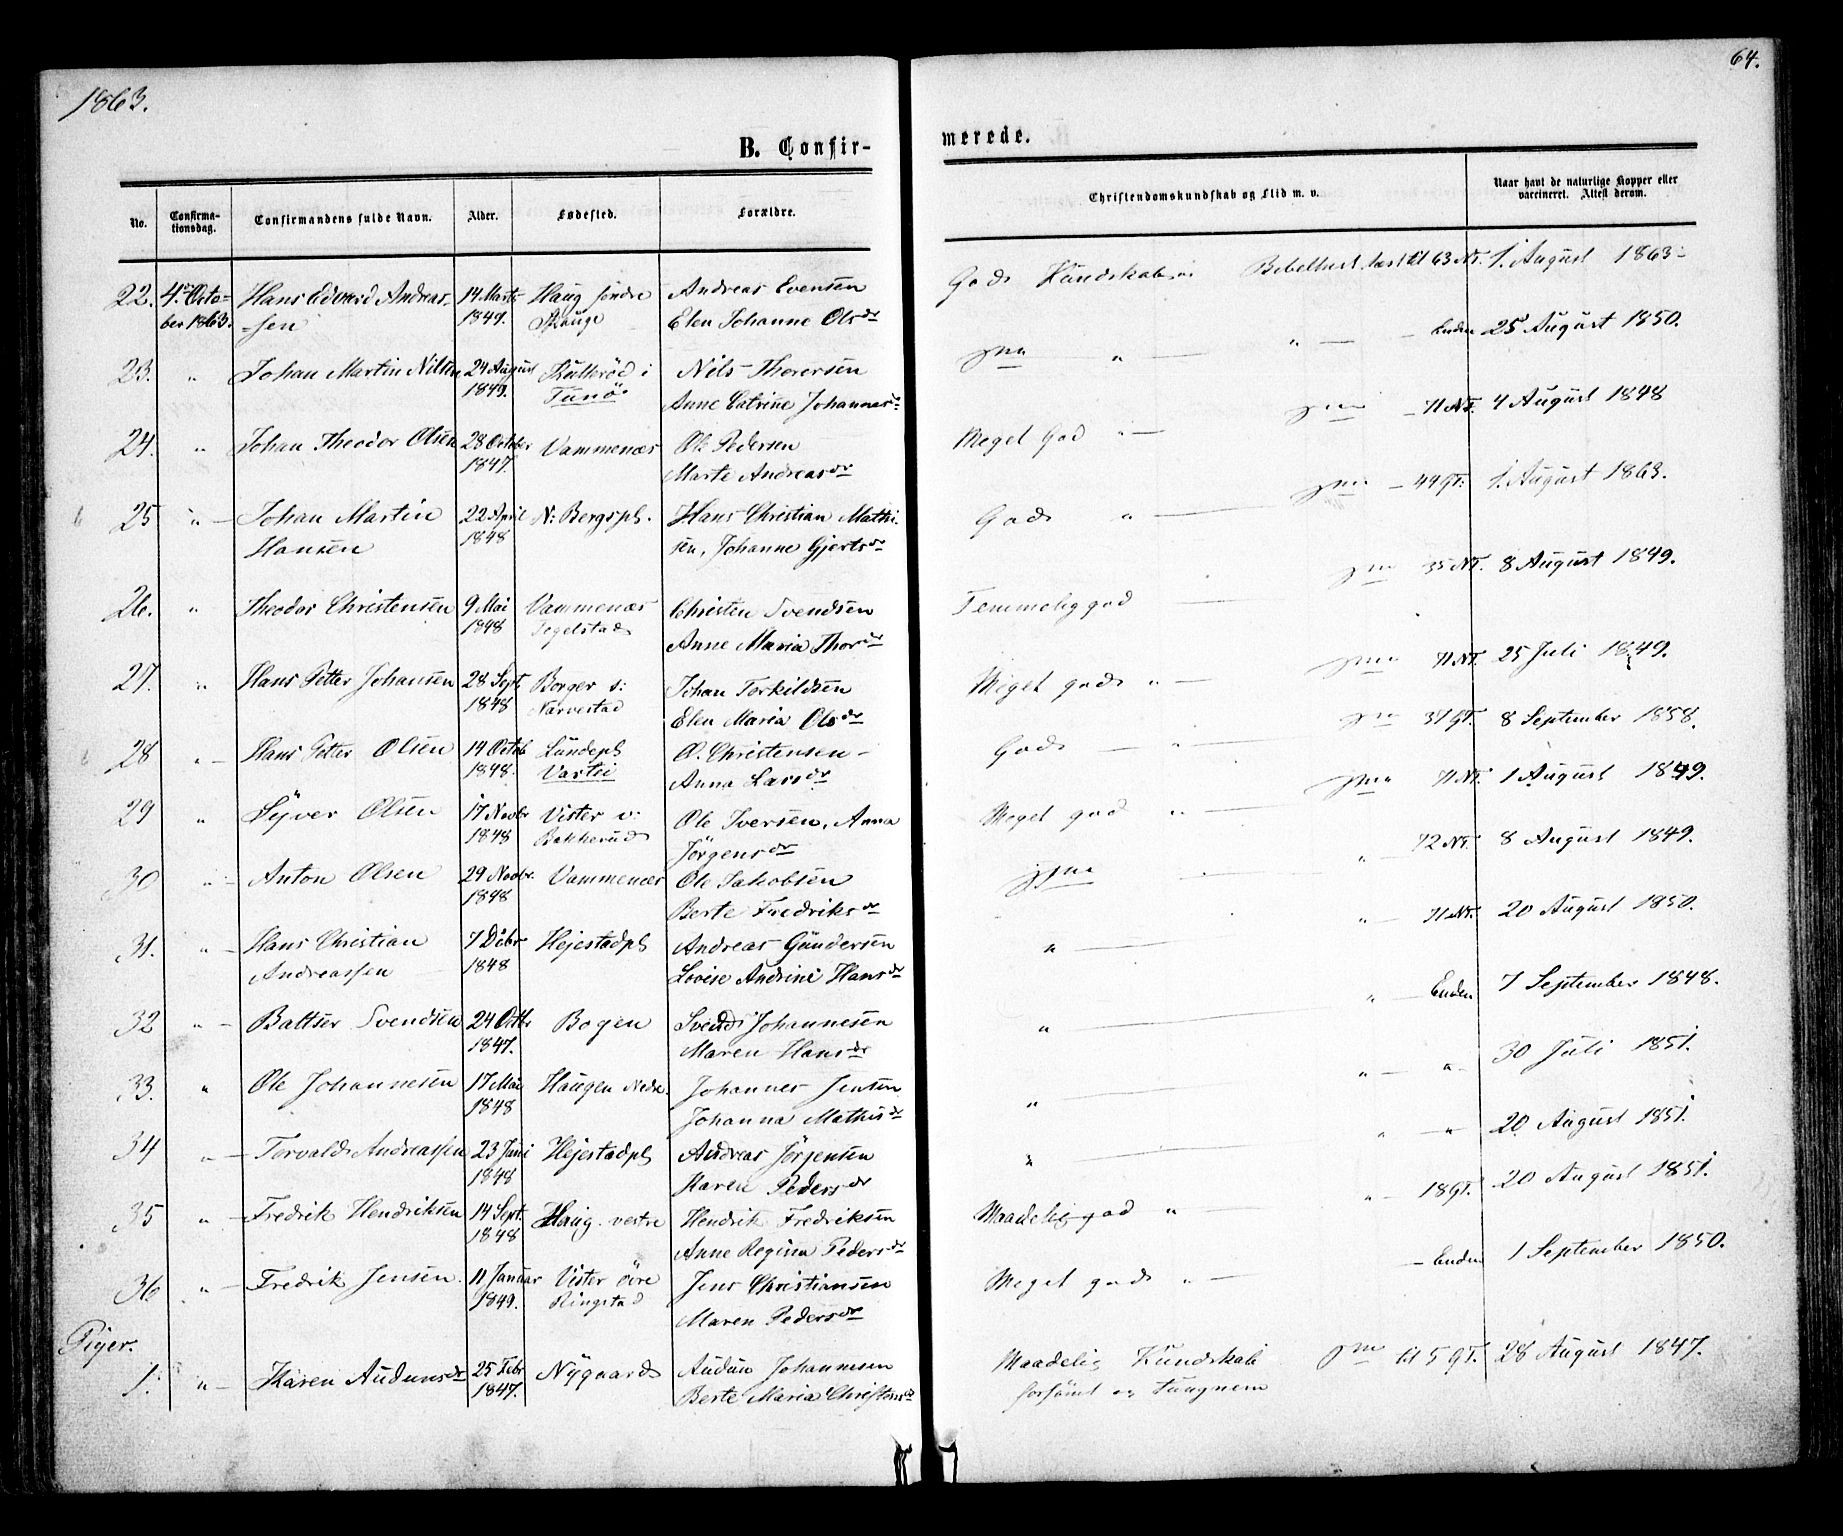 1863.
64.
B. Confir-
merede.
No.
Confirma-
tionsdag.
Confirmandens fulde Navn.
Alder.
Fødested.
Forældre.
Christendomskundskab og Flid m. v.
Naar havt de naturlige Kopper eller
vaccineret. Attest derom.
22. 4de Octo- Hans Edvard Andreas- 14 Marts Haug søndre Andreas Evensen
ber 1863. sen 1849. Elen Johanne Olsdr
Gode Kundskaber Bibelhist. læst til 63 NT. 1. August 1863
23. " Johan Martin Nilsen 24 August i Nils Thorersen
1849. Tunø Anne Catrine Johannesdr
" " Enden 25 August 1850.
24. " Johan Theodor Olsen 28 October Vammenæs Ole Pedersen
1847. Marte Andreasdr
Meget God " 71 NT. 4 August 1848
25 " Johan Martin 22 April N: Bergspl. Hans Christian Mathi-
Hansen 1848 sen, Johanne Gjertsdr
Gode " 44 GT. 1. August 1863.
26. " Theodor Christensen 9 Mai Vammenæs Christen Svendsen
1848 Anne Maria Thorsdr
Temmelig god 35 NT. 8 August 1849.
27. " Hans Petter Johansen 28 Sept. Borger s: Johan Torkildsen
1848 Narvestad Elen Maria Olsdr
Meget gode " 71 NT. 25 Juli 1849.
28 " Hans Petter Olsen 14 Octob Lundepl O. Christensen
1848. Vartei Anna Larsdr
Gode " 37 GT. 8 September 1858.
29 " Syver Olsen 17 Novbr Vister v: Ole Iversen, Anna
1848 Bakkerud Jørgensdr
Meget god " 71 NT. 1 August 1849.
30 " Anton Olsen 29 Novbr. Vammenæs Ole Jakobsen
1848 Berte Fredriksdr
" 72 NT. 8 August 1849.
31. " Hans Christian 7 Dcbr Hejestadpl Andreas Gundersen
Andreassen 1848 Lovise Andrine Hansdr
" " 71 NT. 20 August 1850.
32 " Baltser Svendsen 24 Octbr Bogen Svend Johannesen
1847. Maren Hansdr
" " Enden 7 September 1848.
33. " Ole Johannesen 17 Mai Haugen Nedre Johannes Jensen
1848 Johanna Mathisdr
" " " 30 Juli 1851.
34 " Torvald Andreassen 23 Juni Hejestadpl Andreas Jørgensen
1848 Karen Pedersdr
" " " 20 August 1851.
35 " Fredrik Hendriksen 14 Sept. Haug vestre Hendrik Fredriksen
1848 Anne Regina Pedersdr
Maadelig god " " 18 GT. 20 August 1851.
36 " Fredrik Jensen 11 Januar Vister övre Jens Christiansen
1849. Ringstad Maren Pedersdr
Meget gode " Enden 1 September 1850.
Piger.
1. " Karen Audunsdr 25 Febr Nygaard Audun Johannesen
1847. Berte Maria Christensdr
Maadelig Kundskab til 5 GT. 28 August 1847.
forsömt og Tungnem